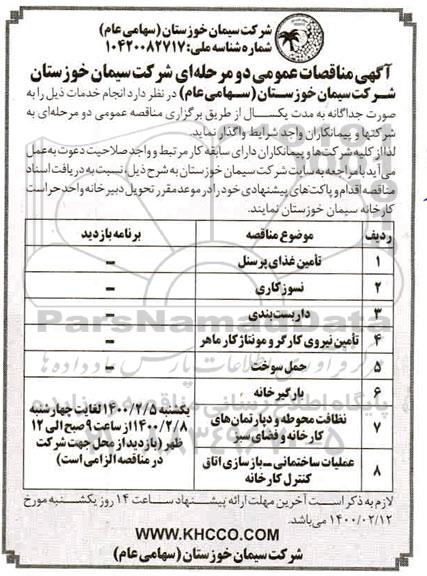 شرکت سیمان خوزستان (سهامی عام)
شماره شناسه ملی: ۱۰۴۲۰۰۸۲۷۱۷
آگهی مناقصات عمومی دو مرحله‌ای شرکت سیمان خوزستان
شرکت سیمان خوزستان (سهامی عام) در نظر دارد انجام خدمات ذیل را به
صورت جداگانه به مدت یکسال از طریق برگزاری مناقصه عمومی دو مرحله‌ای به
شرکتها و پیمانکاران واجد شرایط واگذار نماید.
لذا از کلیه شرکت‌ها و پیمانکاران دارای سابقه کار مرتبط و واجد صلاحیت دعوت به عمل
می‌آید با مراجعه به سایت شرکت سیمان خوزستان به شرح ذیل، نسبت به دریافت اسناد
مناقصه اقدام و پاکت‌های پیشنهادی خود را در موعد مقرر تحویل دبیرخانه واحد حراست
کارخانه سیمان خوزستان نمایند.
ردیف موضوع مناقصه برنامه بازدید
۱ تأمین غذای پرسنل -
۲ نسوزکاری -
۳ داربست‌بندی -
۴ تأمین نیروی کارگر و مونتاژکار ماهر -
۵ حمل سوخت -
۶ بارگیرخانه
۷ نظافت محوطه و دپارتمان‌های کارخانه و فضای سبز
۸ عملیات ساختمانی - بازسازی اتاق کنترل کارخانه
یکشنبه ۱۴۰۰/۲/۵ لغایت چهارشنبه
۱۴۰۰/۲/۸ از ساعت ۹ صبح الی ۱۲
ظهر (بازدید از محل جهت شرکت
در مناقصه الزامی است)
لازم به ذکر است آخرین مهلت ارائه پیشنهاد ساعت ۱۴ روز یکشنبه مورخ
۱۴۰۰/۰۲/۱۲ می‌باشد.
WWW.KHCCO.COM
شرکت سیمان خوزستان (سهامی عام)
ParsNamadData